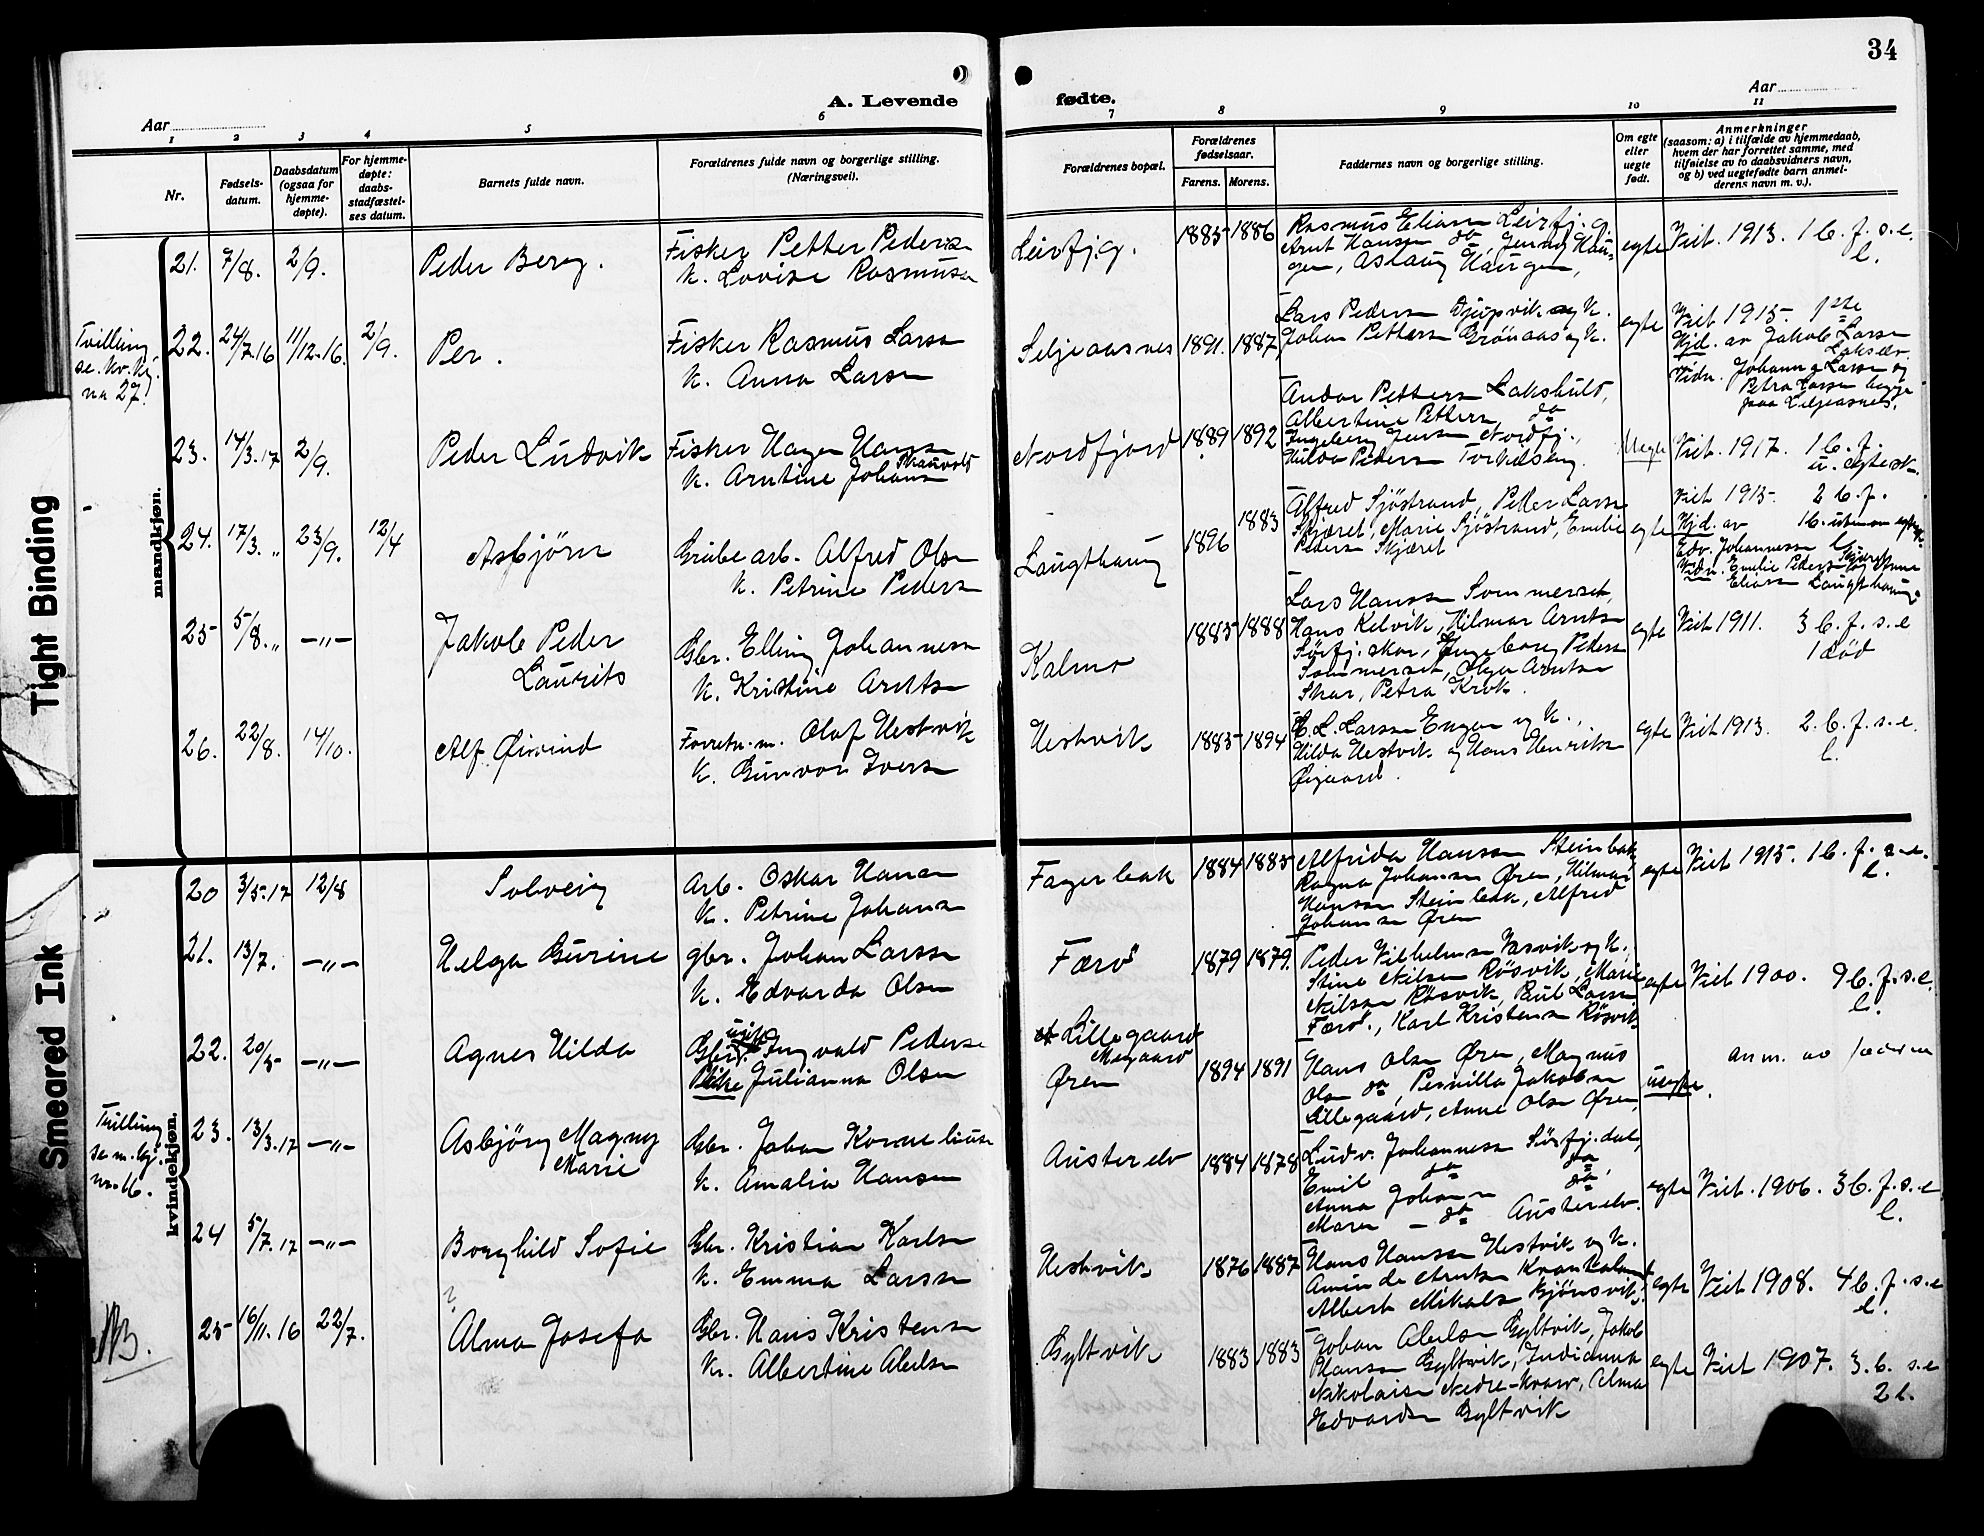 34
A. Levende
fødte.
Aar
Aar
1 2 3 4 5 6 7 8 9 10 11
Nr.
Fødsels-
datum.
Daabsdatum
(ogsaa for
hjemme-
døpte).
For hjemme-
døpte:
daabs-
stadfæstel-
ses datum.
Barnets fulde navn.
Forældrenes fulde navn og borgerlige stilling.
(Næringsvei).
Forældrenes bopæl.
Forældrenes
fødselsaar.
Farens. Morens.
Faddernes navn og borgerlige stilling.
Om egte
eller
uegte
født.
Anmerkninger
(saasom: a) i tilfælde av hjemmedaab,
hvem der har forrettet samme, med
tilføielse av to daabsvidners navn,
og b) ved uegtefødte barn anmel-
derens navn m. v.).
Tight Binding
Smeared Ink
mandkjøn.
21. 7/8. 2/9.
Peder Berg.
Fisker Petter Pedersen
k. Lovise Rasmussen
Leirfj.g.
1885 1886
Rasmus Eliasen Leirfj. g
Arnt Hansen do, Jenny Hau-
gen, Aslaug Haugen,
egte
Viet. 1913. 1 b. f. s. e.
l.
Tvilling
se. kv. kj.
nr 27.
22. 24/7.16 11/12.16. 2/9.
Per.
Fisker Rasmus Larsen
k. Anna Larsen
Seljeaasnes
1891. 1887
Lars Pedersen Djupvik og k.
Johan Pettersen Grönaas og k.
egte
Viet 1915. 1ste
Hjd. av Jakob Larsen
Lakselv.
Vidn. Johanna Larsen og
Petra Larsen begge
paa Seljeaasnes.
23. 14/3.17 2/9.
Peder Ludvik
Fisker Hagen Hansen
Skauvold
k. Arntine Johansen
Nordfjord
1889 1892
Andor Pettersen Lakshuld,
Albertine Pettersen do
Ingeborg Jensen Nordfj.,
Hilda Pedersen Torkelseng.
Uegte
Viet. 1917. 1 b. f.
u. egtesk.
24. 17/3. „ 23/9. 12/4
Asbjörn
Grubearb. Alfred Olsen
k. Petrine Pedersen
Langthaug
1896 1883
Alfred Sjöstrand, Peder Larsen
Skjæret, Marie Sjöstrand, Emilie
Pedersen Skjæret
egte
Viet 1915. 2 b. f.
Hjd. av 1 b. utenom egtesk.
Edv. Johannessen
Vidn. Emilie Pedersen Skjæret
Eliasen Langthaug
25 5/8. „ —„—
Jakob Peder
Laurits
Gbr. Elling Johannesen
k. Kristine Arntsen
Kalmo
1885 1888
Lars Hansen Sommerset,
Hans Kelvik, Hilmar Arntsen
Sörfj. skar, Ingeborg Pedersen
Sommerset, Olga Arntsen
Skar, Petra Krok.
egte
Viet 1911. 3 b. f. s. e
1 död
26. 22/8. 14/10.
Alf Øivind
Forretn. m. Olaf Hestvik
k. Gunvor Iversen
Hestvik
1885 1894
C. L. Larsen Engan og k.,
Hilda Hestvik og Hans Henriksen
Øigaard.
egte
Viet 1913. 2. b. f. s. e.
l.
kvindekjøn.
20 3/5.17 12/8
Solveig
Arb. Oskar Hansen
k. Petrine Johansen
Fagerbak
1884 1885
Alfrida Hansen Steinbak
Ragna Johansen Øren, Hilmar
Hansen Steinbak, Alfred
Johansen Øren
egte
Viet 1915. 1 b. f. s. e.
l.
21. 13/7. —„—
Helga Gurine
gbr. Johan Larsen
k. Edvarda Olsen
Færö
1879 1879.
Peder Vilhelmsen Vasvik og k.
Stine Nilsen Rösvik, Marie
Nilsen Rösvik, Paul Larsen
Færö, Karl Kristensen Rösvik
egte
Viet 1900. 9 b. f. s. e.
l.
22. 20/5 —„—
Agnes Hilda
Ingvald Pedersen
Pike Julianna Olsen
Lillegaard
Megaard
Øren
1894 1891
Hans Olsen Øren, Magnus
Olsen do, Pernilla Jakobsen
Lillegaard, Anne Olsen Øren,
uegte.
anm. av faderen
Tvilling
se m. kj.
nr. 16.
23. 13/3.17 —„—
Asbjörg Magny
Marie
Gbr. Johan Korneliusen
k. Amalia Hansen
Austerelv
1884 1878
Ludv. Johannesen Sörfj. dal,
Emil do do
Anna Johansen do
Maren — do Austerelv.
egte
Viet. 1906. 3 b. f. s. e
l.
24 5/7.17 —„—
Borghild Sofie
Gbr. Kristian Karlsen
k. Emma Larsen
Hestvik
1876 1887
Hans Hansen Hestvik og k.
Aminda Arntsen
Albert Mikalsen Bjönsvik
egte
Viet 1908. 4 b. f. s. e
l.
NB.
25 16/11.16 22/7.
?
Alma Josefa
Gbr. Hans Kristensen
k. Albertine Abelsen
Gyltvik
1883 1883
Johan Abelsen Gyltvik, Jakob
Hansen Gyltvik, Indianna
Nikolaisen Nedre-Kvarv, Alma
Edvardsen Gyltvik
egte
Viet 1907. 3. b. s. e
2 l.